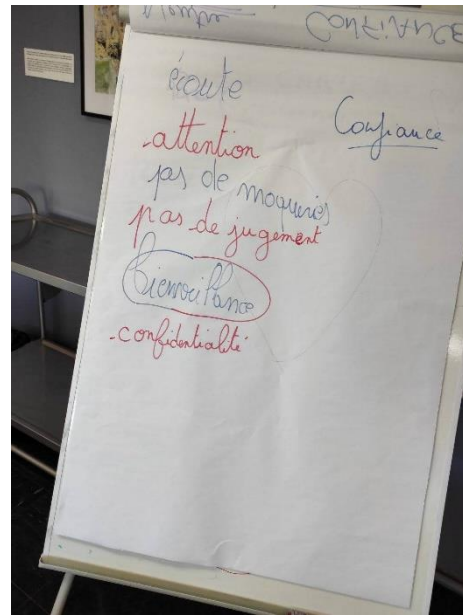 écoute
Confiance
-attention
pas de moqueries
pas de jugement
bienveillance
-confidentialité